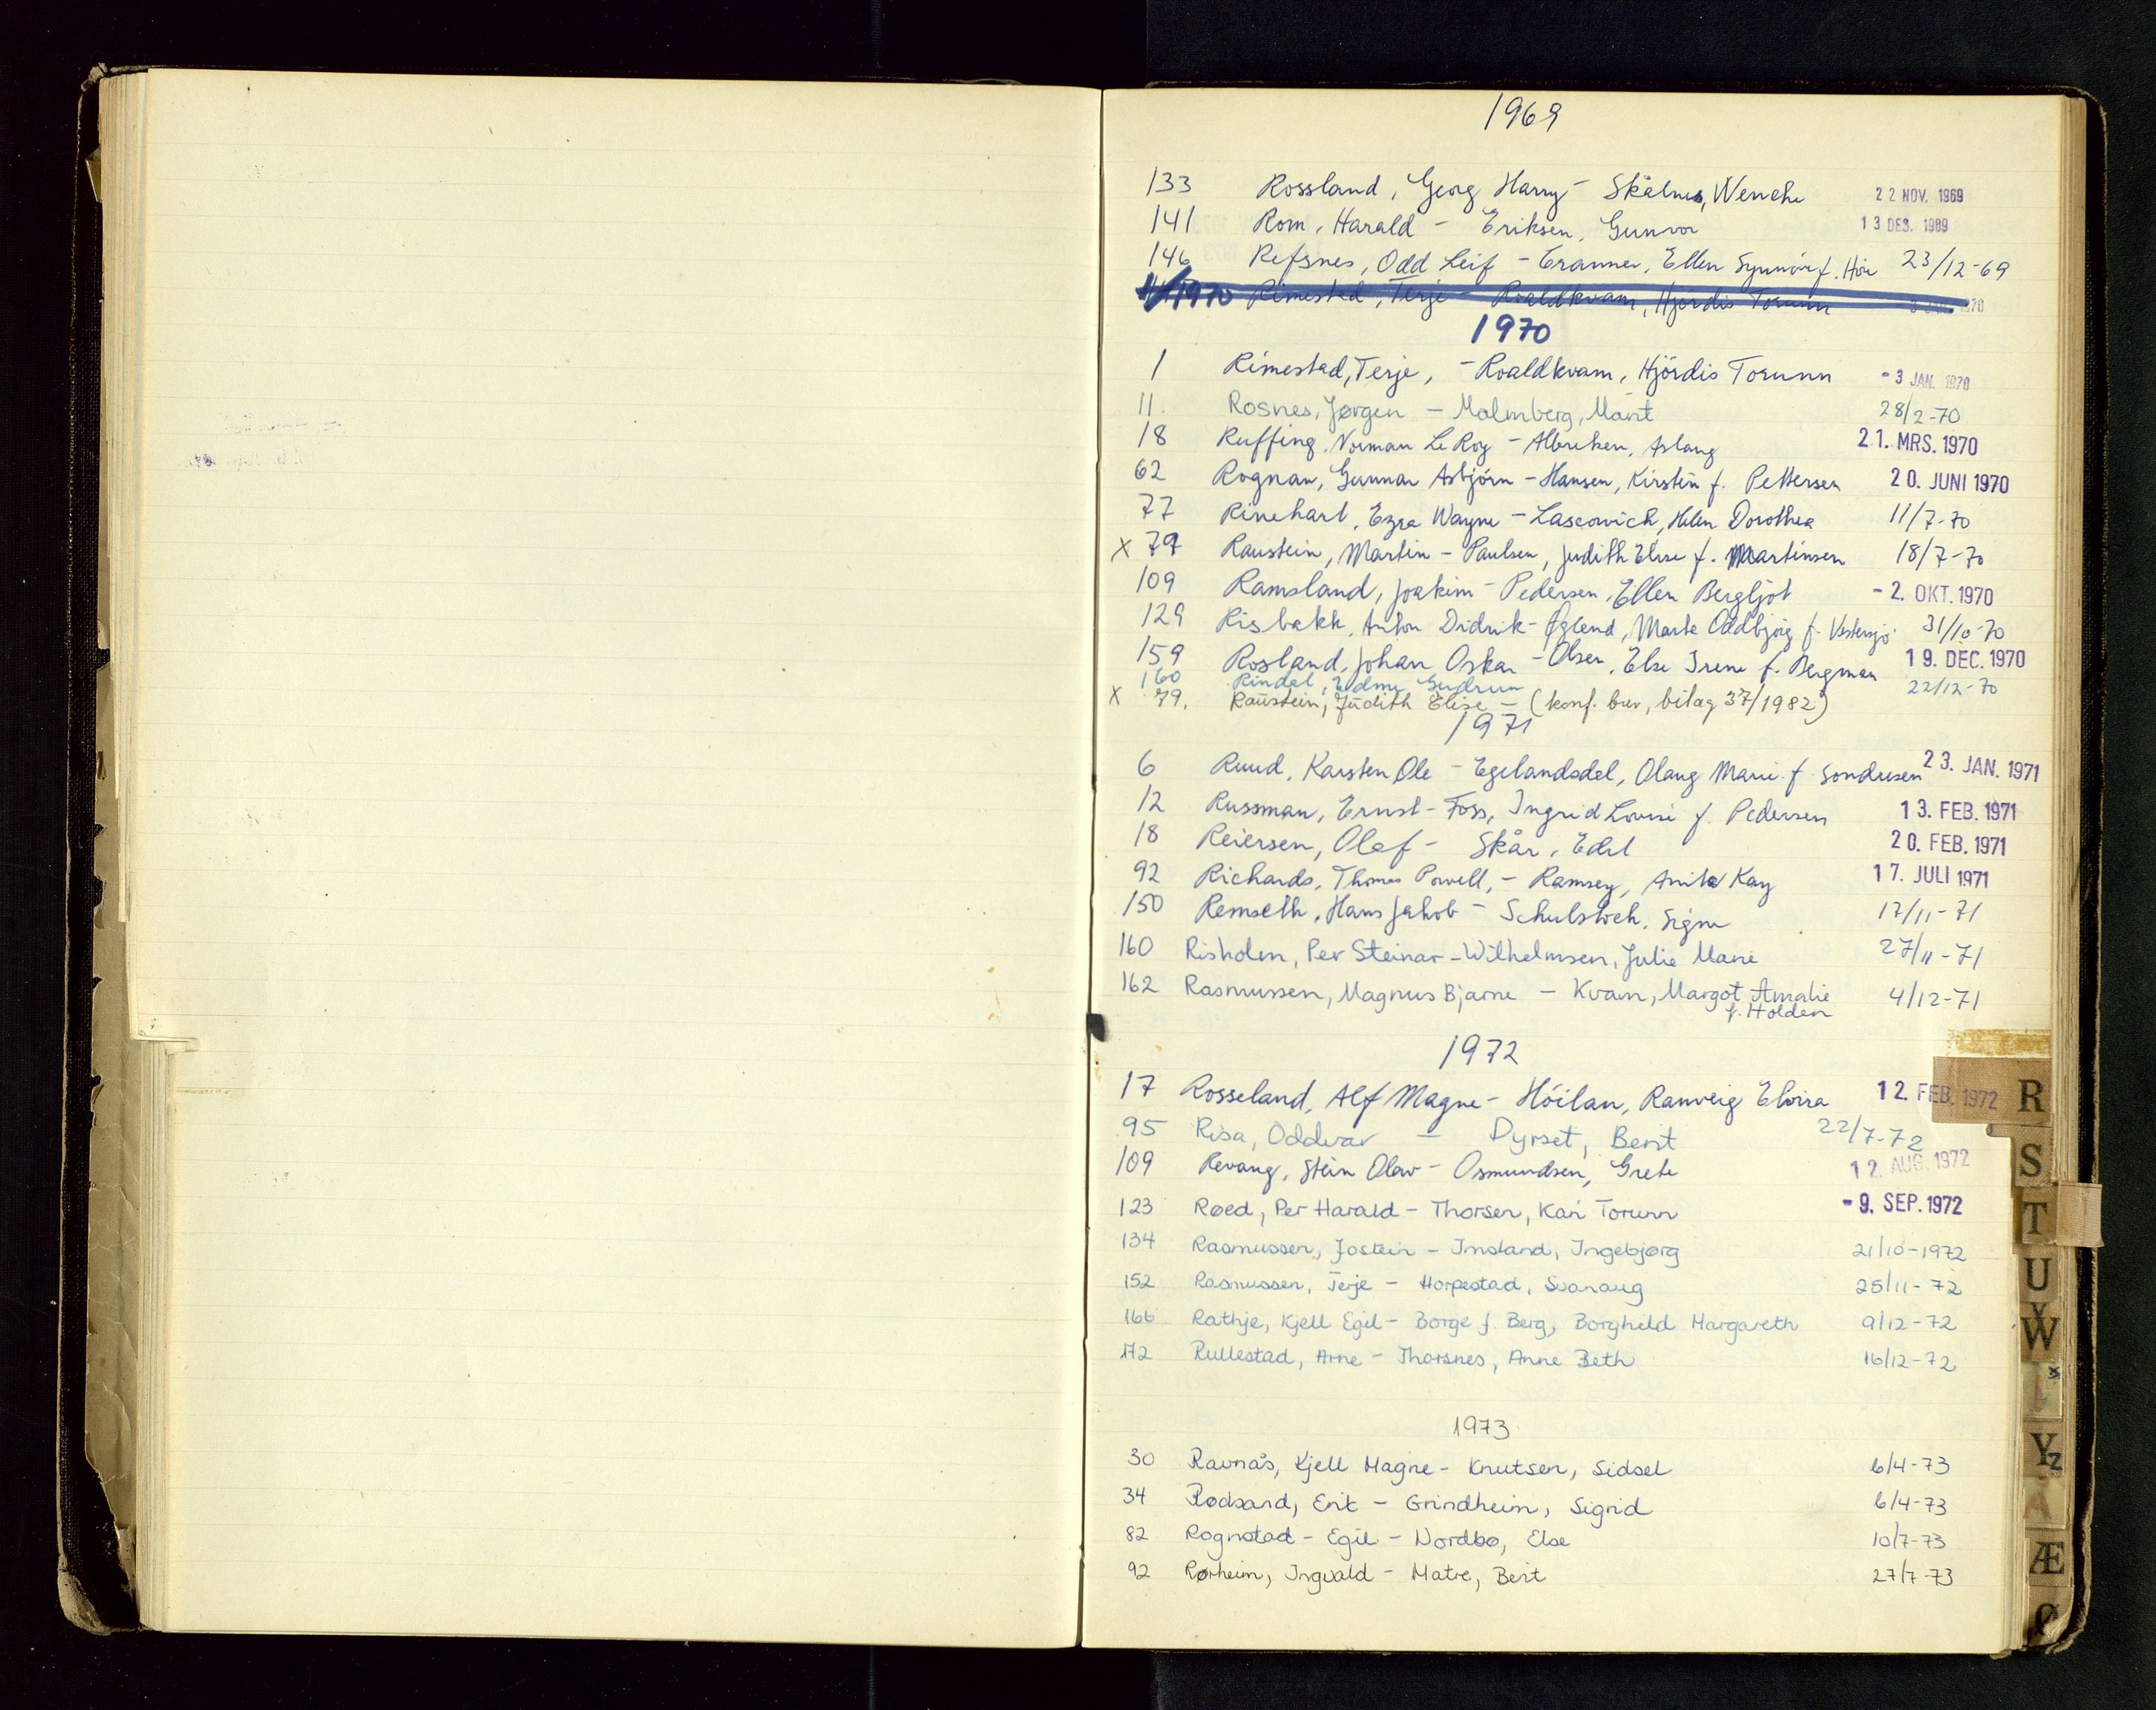 1969
133 Rossland, Georg Harry - Skålnes, Wenche 22 NOV. 1969
141 Rom, Harald - Eriksen, Gunvor 13 DES. 1969
146 Refsnes, Odd Leif - Tranner, Ellen Synnöve f. Hoie 23/12-69
1/1970 Rimestad, Terje - Roaldkvam, Hjördis Torunn -3 JAN. 1970
1970
1 Rimestad, Terje, - Roaldkvam, Hjördis Torunn -3 JAN. 1970
11. Rosnes, Jørgen - Malmberg, Marit 28/2-70
18 Ruffing, Norman Le Roy - Albretsen, Aslaug 21. MRS. 1970
62 Rognan, Gunnar Asbjörn - Hansen, Kirstin f. Pettersen 20. JUNI 1970
77 Rinehart, Ezra Wayne - Lascowich, Helen Dorothea 11/7-70
x 79 Raustein, Martin - Paulsen, Judith Elise f. Martinsen 18/7-70
109 Ramsland, Joakim - Pedersen, Ellen Bergljot -2. OKT. 1970
129 Risbakk, Anton Didrik - Øglend, Marta Oddbjörg f. Vestersjö 31/10-70
159 Rosland, Johan Oskar - Olsen, Else Irene f. Bergman 19. DEC. 1970
160 Rindal, Edme Gudrun 22/12-70
x 79. Raustein, Judith Elise - (konf. brev, bilag 37/1982)
1971
6 Ruud, Karsten Ole - Egelandsdal, Olaug Marie f. Sondresen 23. JAN. 1971
12 Russman, Ernst - Foss, Ingrid Lovise f. Pedersen 13. FEB. 1971
18 Reiersen, Olaf - Skår, Edel 20. FEB. 1971
92 Richards, Thomas Powell, - Ramsey, Anita Kay 17. JULI 1971
150 Remseth, Hans Jakob - Schulstock, Signe 17/11-71
160 Risholm, Per Steinar - Wilhelmsen, Julie Marie 27/11-71
162 Rasmussen, Magnus Bjarne - Kvam, Margot Amalie 4/12-71
f. Holden
1972
17 Rosseland, Alf Magne - Höilan, Ranveig Elvira 12. FEB. 1972
95 Risa, Oddvar - Dyrset, Berit 22/7-72
109 Revang, Stein Olav - Osmundsen, Grete 12. AUG. 1972
123 Røed, Per Harald - Thorsen, Kari Torunn -9. SEP. 1972
134 Rasmussen, Jostein - Imsland, Ingebjørg 21/10-1972
152 Rasmussen, Terje - Horpestad, Svanaug 25/11-72
166 Rathje, Kjell Egil - Borge f. Berg, Borghild Margareth 9/12-72
172 Rullestad, Arne - Thorsnes, Anne Beth 16/12-72
1973
30 Ravnås, Kjell Magne - Knutsen, Sidsel 6/4-73
34 Rødsand, Erik - Grindheim, Sigrid 6/4-73
82 Rognstad - Egil - Nordbø, Else 10/7-73
92 Rørheim, Ingvald - Matre, Berit 27/7-73
R
S
T
U
V
W
Y
Z
Å
Æ
Ø